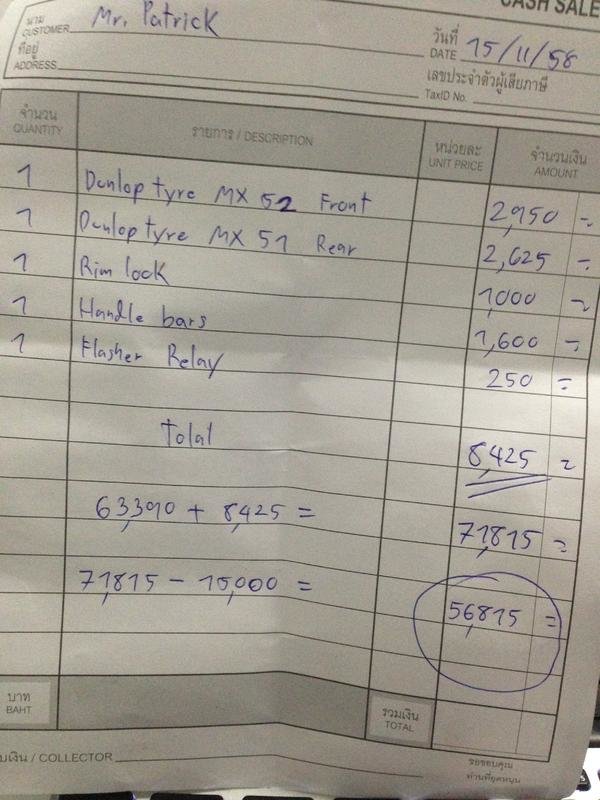 CASH SALE
นาม Mr. Patrick
CUSTOMER
วันที่
DATE 15/11/58
ที่อยู่
ADDRESS
เลขประจำตัวผู้เสียภาษี
TaxID No.
จำนวน รายการ / DESCRIPTION หน่วยละ จำนวนเงิน
QUANTITY UNIT PRICE AMOUNT
1 Dunlop tyre MX 52 Front 2,950 =
1 Dunlop tyre MX 51 Rear 2,625 =
1 Rim lock 1,000 =
1 Handle bars 1,600 =
1 Flasher Relay 250 =
Total 8,425 =
63,390 + 8,425 = 71,815 =
71,815 - 15,000 = 56,815 =
บาท รวมเงิน
BAHT TOTAL
บเงิน / COLLECTOR
ขอขอบคุณ
ท่านที่อุดหนุน